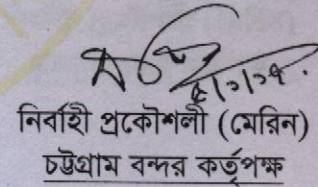 নির্বাহী প্রকৌশলী (মেরিন)
চট্টগ্রাম বন্দর কর্তৃপক্ষ